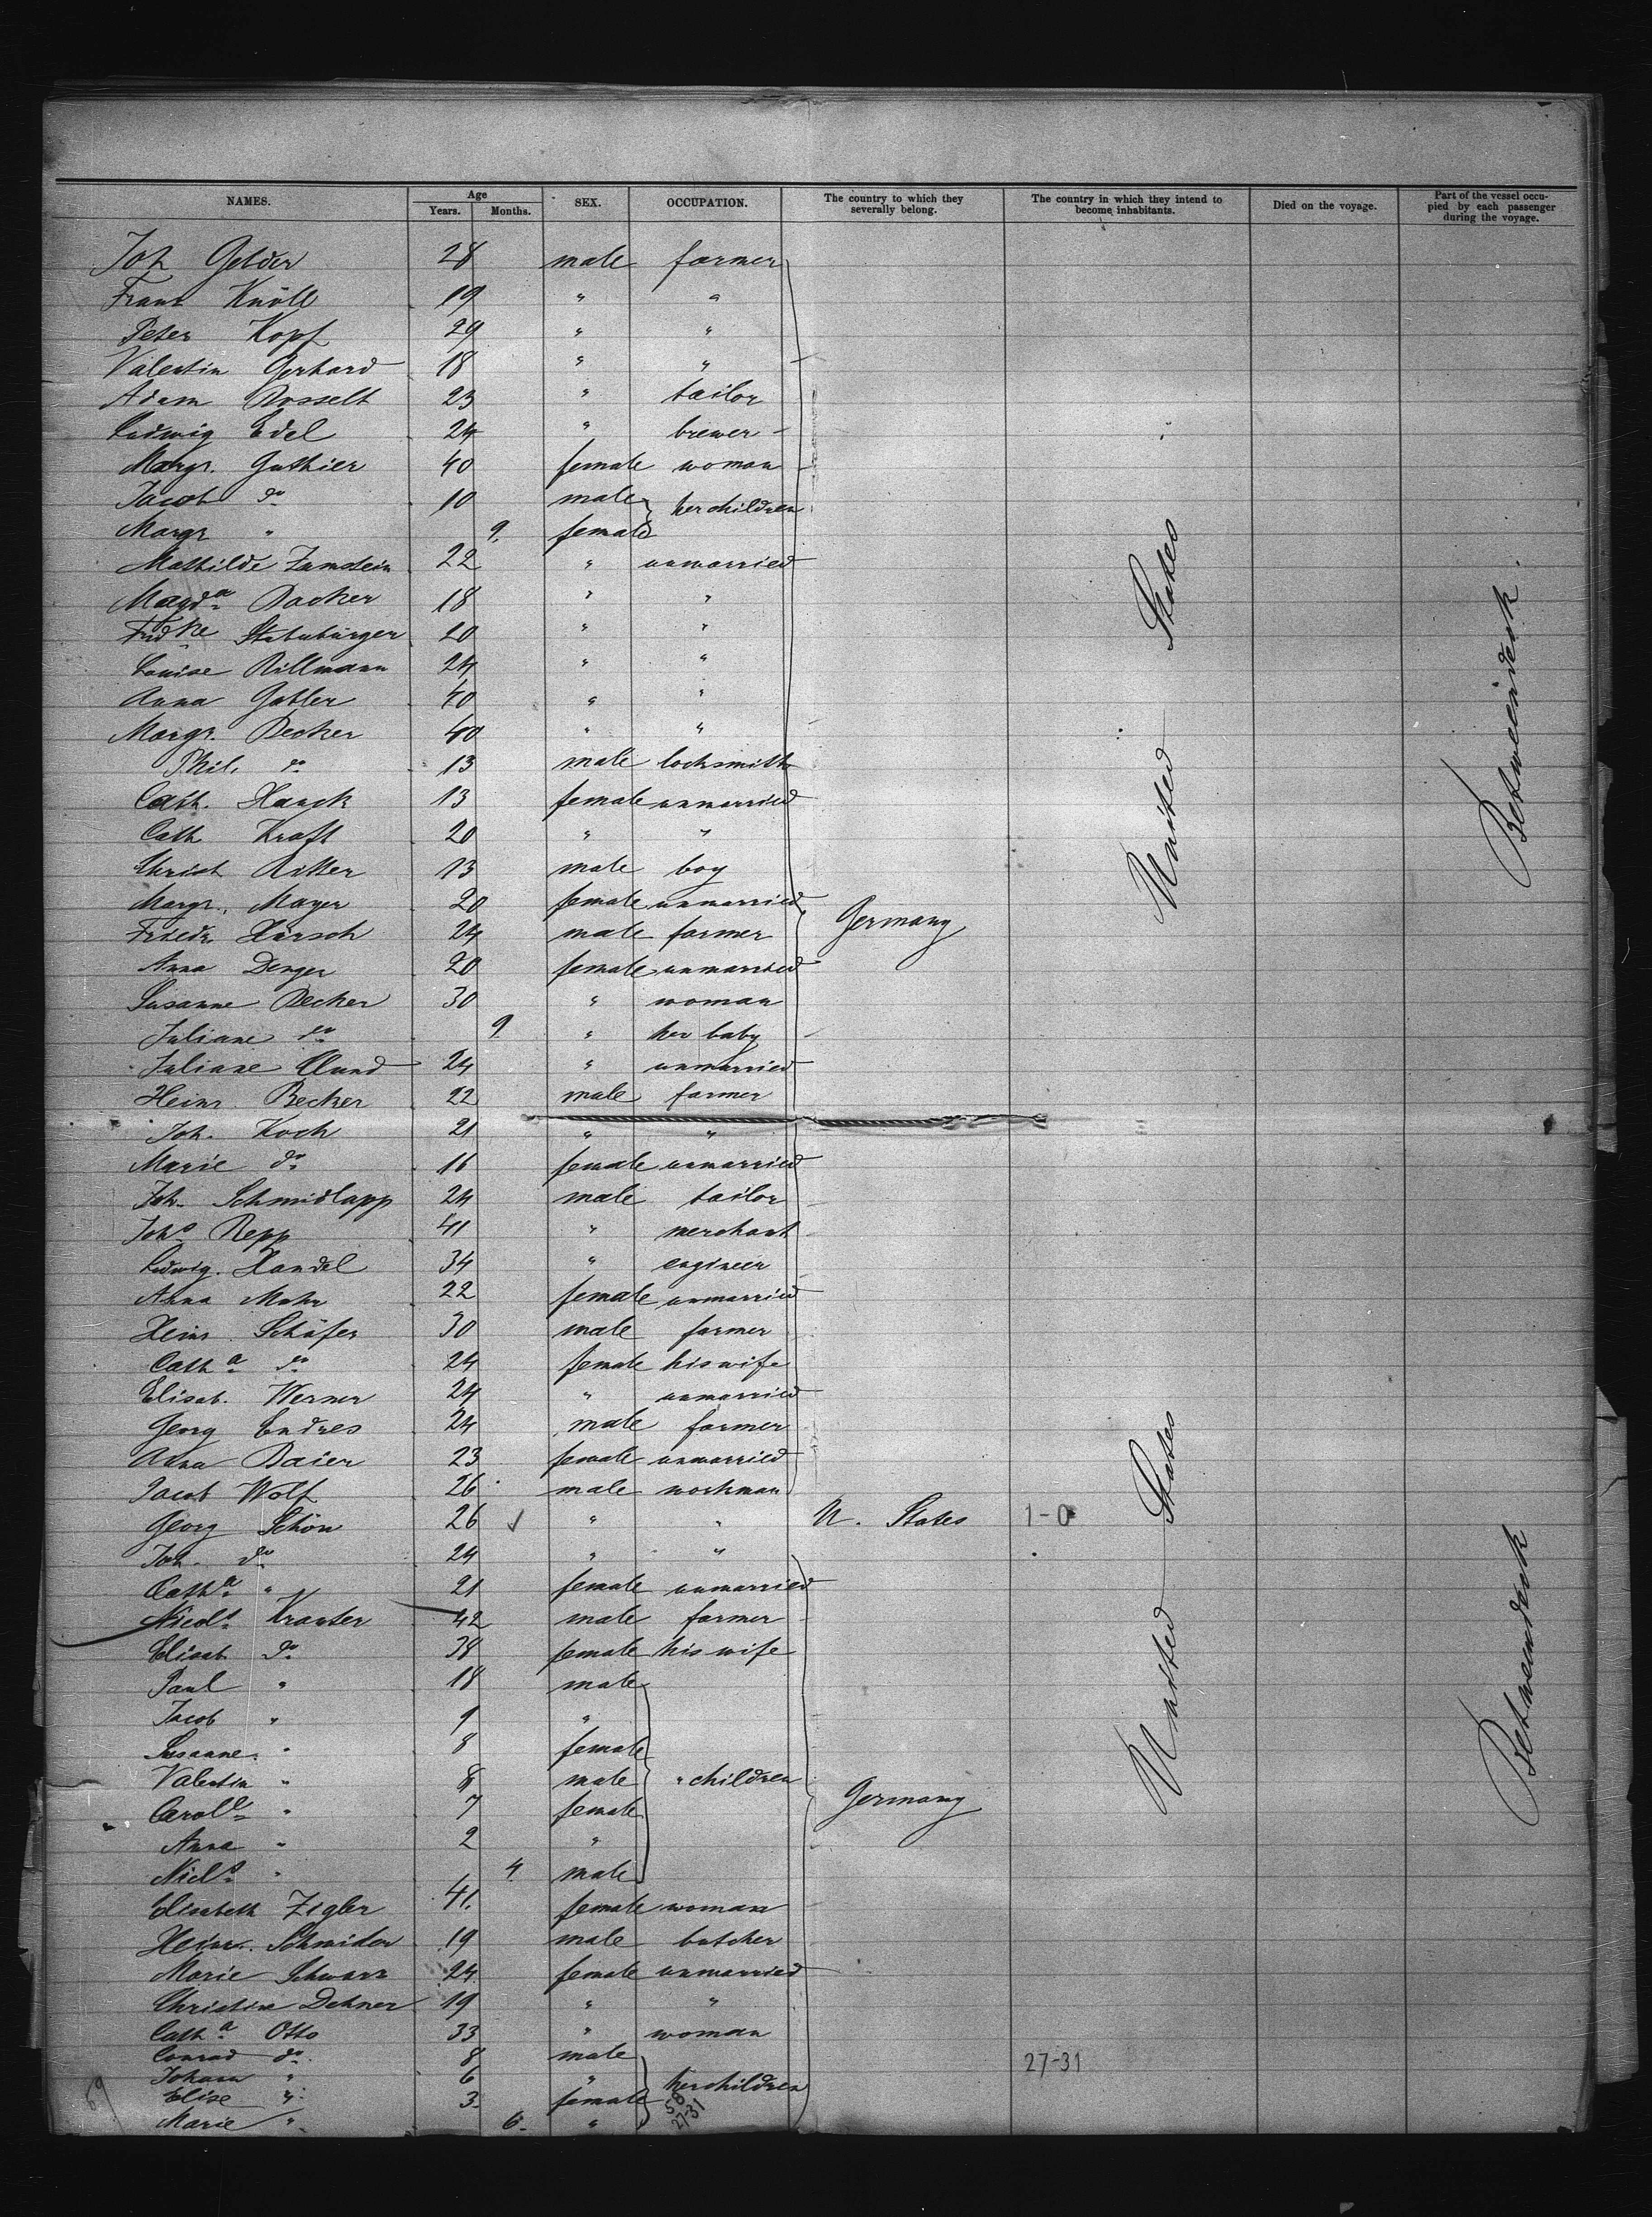 NAMES. Age Years. Months. SEX. OCCUPATION. The country to which they severally belong. The country in which they intend to become inhabitants. Died on the voyage. Part of the vessel occupied by each passenger during the voyage.
Joh Gelder 28 male farmer
Franz Knöll 19 " "
Peter Kopf 29 " "
Valentin Gerhard 18 " "
Adam Rosselt 23 " tailor
Ludwig Edel 24 " brewer
Margr. Guthier 40 female woman
Jacob do 10 male her children
Margr " 9. female
Mathilde Zumstein 22 " unmarried
Magda Backer 18 " "
Fridke 20 " "
Louise Rillmann 24 " "
Anna Gabler 40 " "
Margr. Becker 40 " "
Phil. do 13 male locksmith
Cath. Hauck 13 female unmarried
Cath Kraft 20 " "
Christ Ritter 13 male boy
Margr. Mayer 20 female unmarried
Germany
Friedr. Harsch 24 male farmer
Anna Denger 20 female unmarried
Susanne Becker 30 " woman
Juliane do 9. " her baby
Juliane Clund 24 " unmarried
Heinr. Becker 22 male farmer
Joh. Koch 21 " "
Marie do 16 female unmarried
Joh. Schmidlapp 24 male tailor
Johs Repp 41 " merchant
Ludwig. Handel 34 " engineer
Anna Mohr 22 female unmarried
Heinr. Schäfer 30 male farmer
Catha do 24 female his wife
Elisab. Werner 24 " unmarried
Georg Endres 24 male farmer
Anna Baier 23 female unmarried
Jacob Wolf 26 male workman
Georg Schön 26 " " U. States 1-0
Joh. do 24 " "
Catha " 21 female unmarried
Nicols Kranter 42 male farmer
Elisab do 38 female his wife
Paul " 18 male
Jacob " 9 "
Susanne " 8 female
Valentin " 8 male " children
Carole " 7 female
Germany
Anna " 2 "
Nicls " 4. male
Elisabeth Zigler 41. female woman
Heinr. Schneider 19 male butcher
Marie Schwarz 24 female unmarried
Christine Dehner 19 " "
Catha Otto 33 " woman
Conrad do. 8 male
27-31
Johann " 6 " her children
Elise " 3. female
Marie " 6. "
58
27-31
69
United States
United States
Betweendeck.
Betweendeck